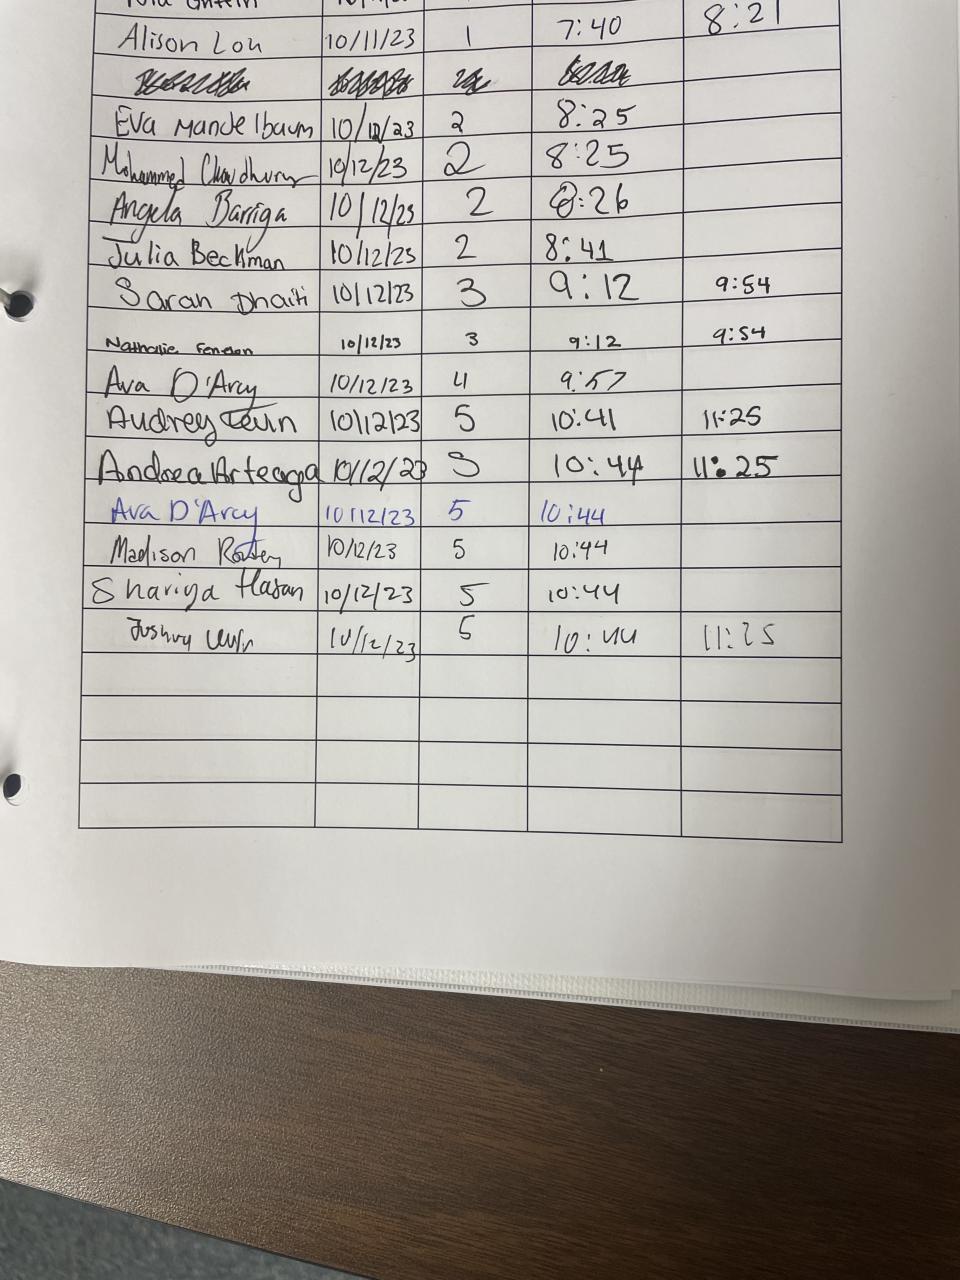 Alison Lou 10/11/23 1 7:40 8:21
Eva Mandelbaum 10/12/23 2 8:25
Mohammed Chowdhury 10/12/23 2 8:25
Angela Barriga 10/12/23 2 8:26
Julia Beckman 10/12/23 2 8:41
Sarah Dhaiti 10/12/23 3 9:12 9:54
Nathalie 10/12/23 3 9:12 9:54
Ava D'Arcy 10/12/23 4 9:57
Audrey 10/12/23 5 10:41 11:25
Andrea Arteaga 10/12/23 5 10:44 11:25
Ava D'Arcy 10/12/23 5 10:44
Madison 10/12/23 5 10:44
Shariya Hasan 10/12/23 5 10:44
Joshua 10/12/23 5 10:44 11:25